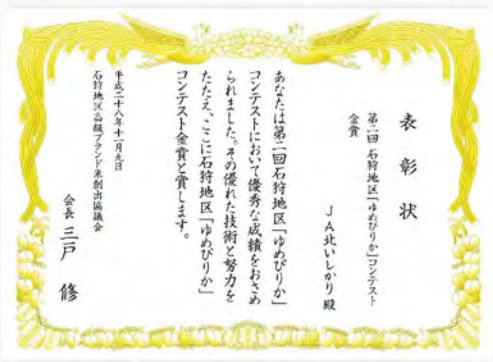 表彰状
第二回 石狩地区「ゆめぴりか」コンテスト
金賞
JA北いしかり 殿
あなたは第二回石狩地区「ゆめぴりか」
コンテストにおいて優秀な成績をおさめ
られました。その優れた技術と努力を
たたえ、ここに石狩地区「ゆめぴりか」
コンテスト金賞と賞します。
平成二十八年十一月九日
石狩地区高級ブランド米創出協議会
会長 三戸 修